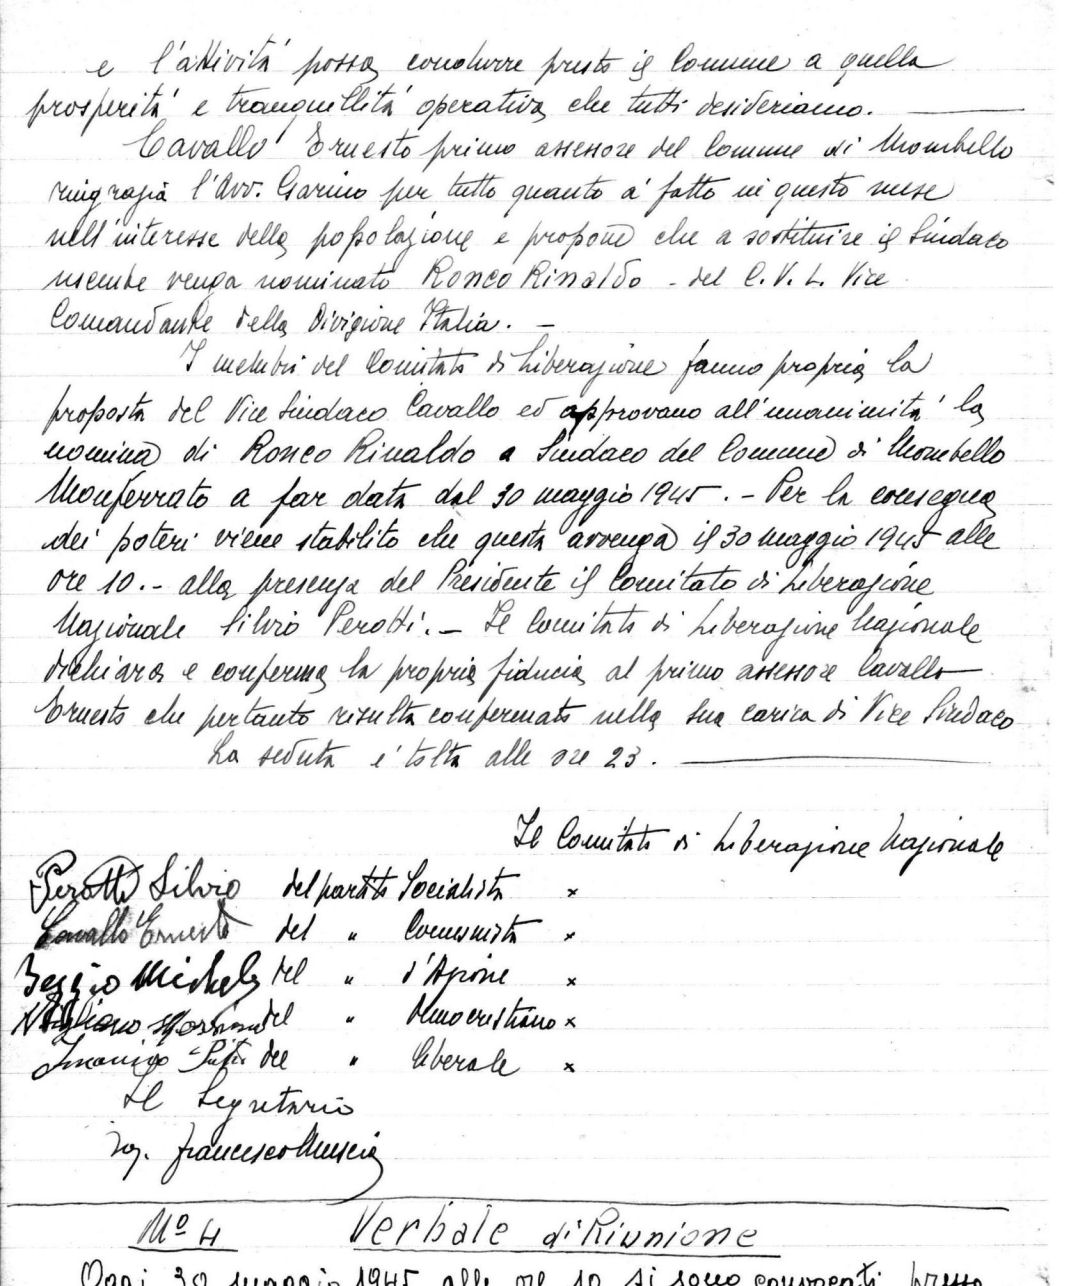 e l'attività possa condurre presto il Comune a quella
prosperità e tranquillità operativa che tutti desideriamo.
Cavallo Ernesto primo assessore del Comune di Mombello
ringrazia l'Avv. Garino per tutto quanto à fatto in questo mese
nell'interesse della popolazione e propone che a sostituire il Sindaco
uscente venga nominato Ronco Rinaldo - del C.V.L. Vice
Comandante della Divisione Italia. -
I membri del Comitato di Liberazione fanno propria la
proposta del Vice Sindaco Cavallo ed approvano all'unanimità la
nomina di Ronco Rinaldo a Sindaco del Comune di Mombello
Monferrato a far data dal 30 maggio 1945. - Per la consegna
dei poteri viene stabilito che questa avvenga il 30 maggio 1945 alle
ore 10. - alla presenza del Presidente il Comitato di Liberazione
Nazionale Silvio Perotti. - Il Comitato di Liberazione Nazionale
dichiara e conferma la propria fiducia al primo assessore Cavallo
Ernesto che pertanto risulta confermato nella sua carica di Vice Sindaco
La seduta è tolta alle ore 23.
Il Comitato di Liberazione Nazionale
Perotti Silvio del partito Socialista x
Cavallo Ernesto del " Comunista x
Beggio Michele del " d'Azione x
del " Democristiano x
del " liberale x
Il Segretario
Francesco Muscia
N° 4 Verbale di Riunione
Oggi 30 maggio 1945 alle ore 10 si sono convocati presso